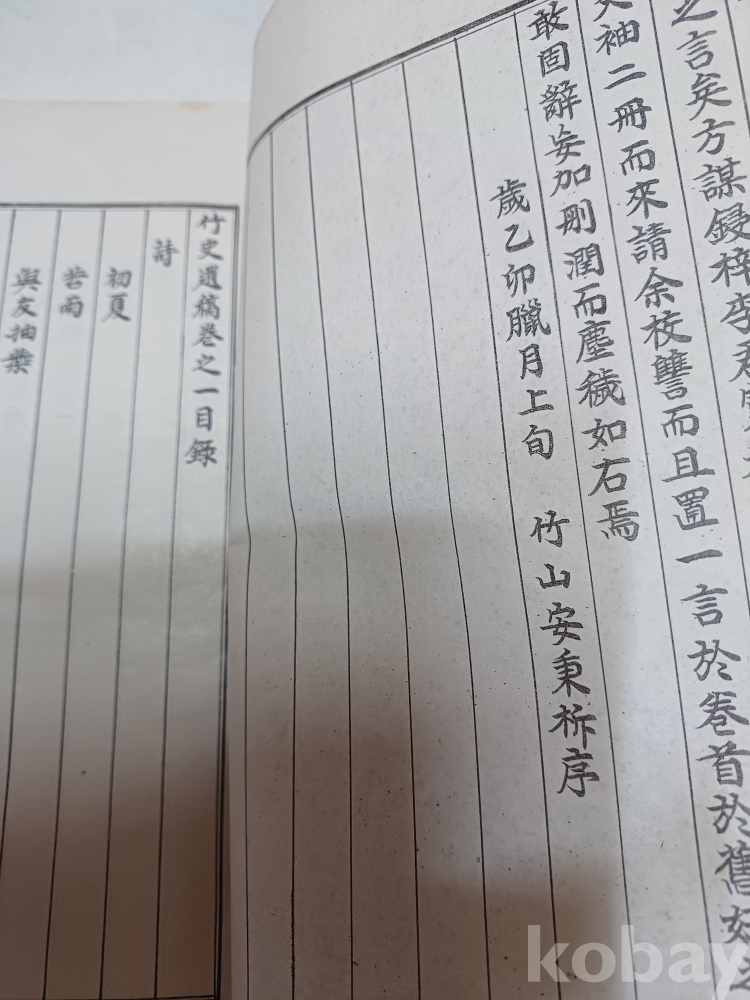 之言矣方謀鋟梓李君
袖二冊而來請余校讐而且置一言於卷首於舊好
敢固辭妄加刪潤而塵穢如右焉
歲乙卯臘月上旬 竹山安秉柝序
竹史遺稿卷之一目錄
詩
初夏
苦雨
與友抽葉
kobay